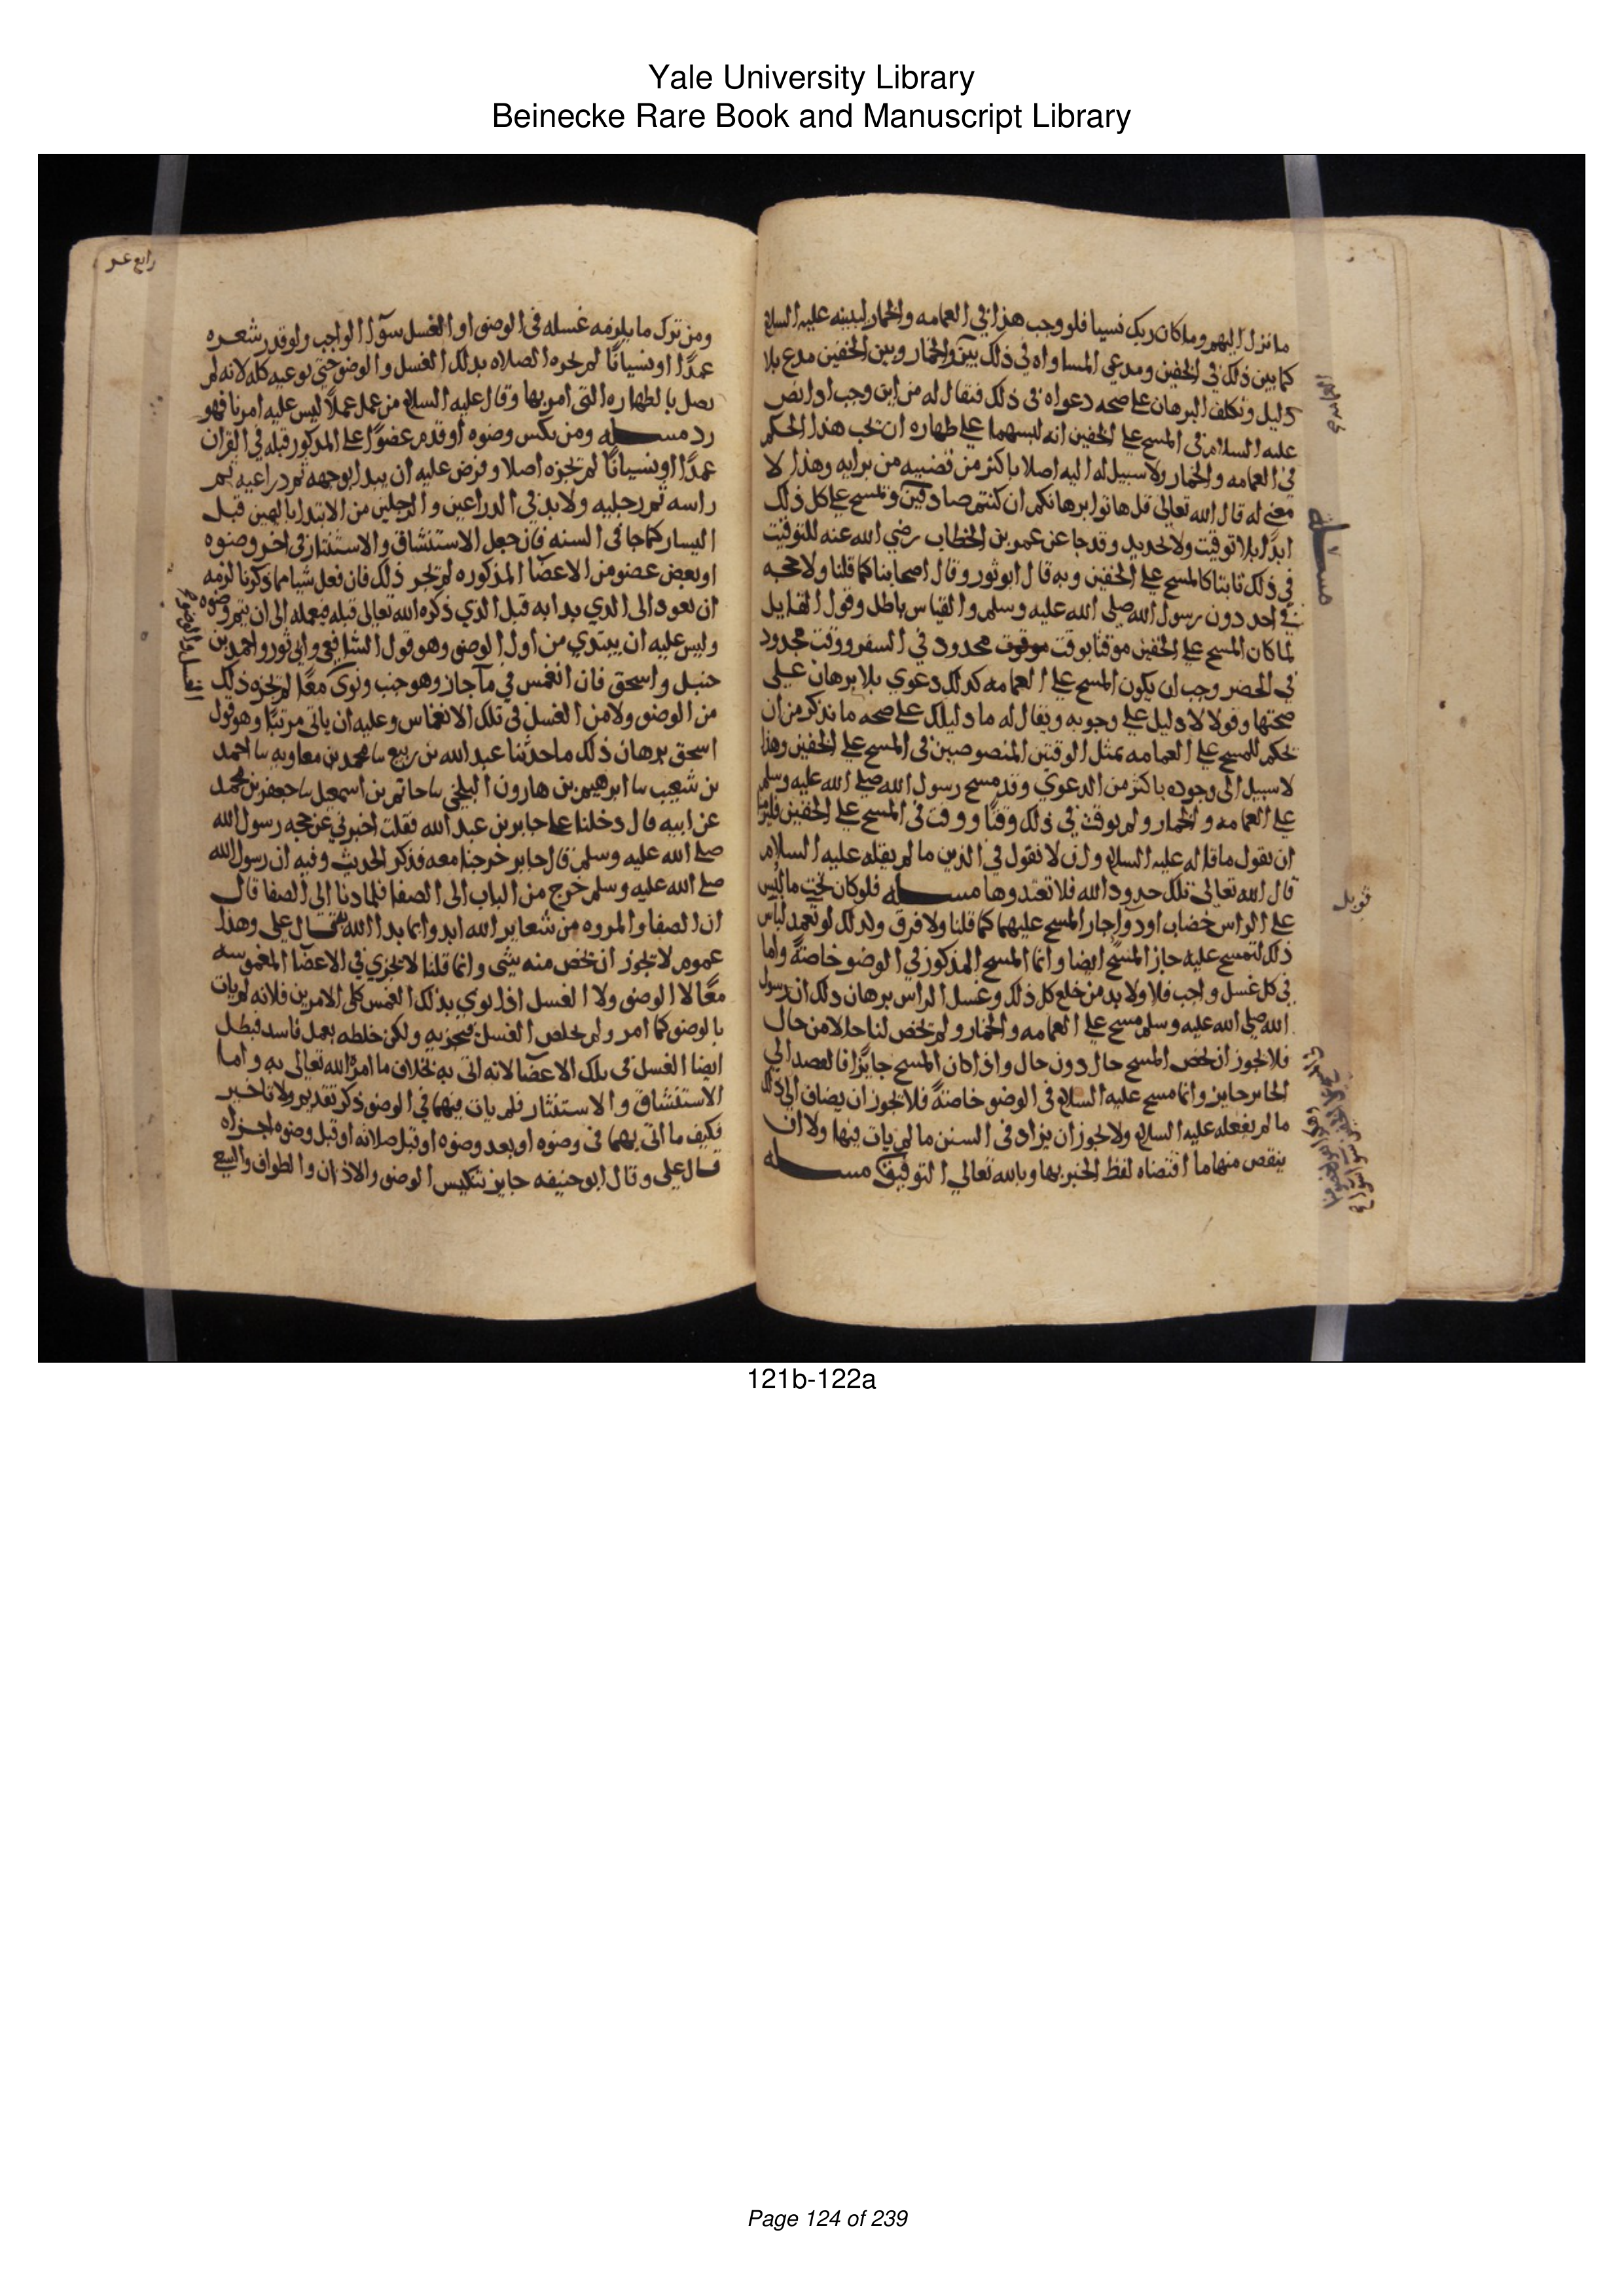 Yale University Library
Beinecke Rare Book and Manuscript Library
ما نزل اليهم وما كان ربك نسيا فلو وجب هذا في العمامه والخمار لبينه عليه السلام
كما بين ذلك في الخفين ومدعي المساواه في ذلك بين والخمار وبين الخفين مدع بلا
دليل ونكلف البرهان على صحه دعواه في ذلك فنقال له من اين وجب اذا نص
عليه السلام في المسح على الخفين انه لبسهما على طهاره ان نجب هذا الحكم
في العمامه والخمار ولا سبيل له اليه اصلا باكثر من قضيه من برايه وهذا لا
معنى له قال الله تعالى قل هاتوا برهانكم ان كنتم صادقين ونمسح على كل ذلك
ابدا بلا توقيت ولا تحديد وقد جا عن عمر بن الخطاب رضي الله عنه للتوقيت
في ذلك ثابتا كالمسح على الخفين وبه قال ابو ثور وقال اصحابنا كما قلنا ولا حجه
في احد دون رسول الله صلى الله عليه وسلم والقياس باطل وقول القايل
لما كان المسح على الخفين موقتا بوقت موقوت محدود في السفر ووقت محدود
في الحضر وجب ان يكون المسح على العمامه كذلك دعوي بلا برهان على
صحتها وقولا لا دليل على وجوبه ويقال له ما دليلك على صحه ما تذكر من ان
تحكم للمسح على العمامه بمثل الوقتين المنصوصين في المسح على الخفين وهذا
لا سبيل الى وجوده باكثر من الدعوي وقد مسح رسول الله صلى الله عليه وسلم
على العمامه والخمار ولم يوقت في ذلك وقتا ووقت في المسح على الخفين فلزمنا
ان نقول ما قاله عليه السلام وان لا نقول في الدين ما لم يقله عليه السلام
قال الله تعالى تلك حدود الله فلا تعتدوها مسله فلو كان تحت ما لبس
على الراس خضاب او دوا جاز المسح عليهما كما قلنا ولا فرق وكذلك لو تعمد لباس
ذلك لتمسح عليه جاز المسح ايضا وانما المسح المذكور في الوضو خاصة واما
في كل غسل واجب فلا ولا بد من خلع كل ذلك وغسل الراس برهان ذلك ان رسول
الله صلى الله عليه وسلم مسح على العمامه والخمار ولم يخص لنا حالا من حال
فلا يجوز ان يخص المسح حال دون حال واذا كان المسح جايزا فالقصد الي
الجايز جايز وانما مسح عليه السلام في الوضو خاصة فلا يجوز ان يضاف الى ذلك
ما لم يفعله عليه السلام ولا يجوز ان يزاد في السنن ما لم يات فيها ولا ان
ينقص منها ما اقتضاه لفظ الخبر بها وبالله تعالي التوفيق مسله
مسله
قوبل
رابع عشر
ومن ترك ما يلزمه غسله في الوضو او الغسل الواجب ولو قدر شعره
عمدا او نسيانا لم تجزه الصلاه بذلك الغسل والوضو حتى يوعيه كله لانه لم
يصل بالطهاره التي امر بها وقال عليه السلام من عمل عملا ليس عليه امرنا فهو
رد مسله ومن نكس وضوه او قدم عضوا على المذكور قبله في القران
عمدا او نسيانا لم تجزه اصلا وفرض عليه ان يبدا بوجهه ثم ذراعيه ثم
راسه ثم رجليه ولا بد في الذراعين والرجلين من الابتدا باليمين قبل
اليسار كما جا في السنه فان جعل الاستنشاق والاستنثار في اخر وضوه
او بعض عضو من الاعضا المذكوره لم تجز ذلك فان فعل شيا مما ذكرنا لزمه
ان يعود الى الذي بدا به قبل الذي ذكره الله تعالى قبله فيعمله الى ان يتم وضوه
وليس عليه ان يبتدي من اول الوضو وهو قول الشافعي وابي ثور واحمد بن
حنبل واسحق فان انغمس في ما جار وهو جنب ونوى معا لم تجزه ذلك
من الوضو ولا من الغسل في تلك الانغماس وعليه ان ياتي مرتبا وهو قول
اسحق برهان ذلك ما حدثنا عبد الله بن ربيع سا محمد بن معاويه سا احمد
بن شعيب سا ابرهيم بن هارون البلخي سا حاتم بن اسمعيل سا جعفر بن محمد
عن ابيه قال دخلنا على جابر بن عبد الله فقلت اخبرني عن حجه رسول الله
صلى الله عليه وسلم قال جابر خرجنا معه فذكر الحديث وفيه ان رسول الله
صلى الله عليه وسلم خرج من الباب الى الصفا فلما دنا الى الصفا قال
ان الصفا والمروه من شعاير الله ابدوا بما بدا الله قال علي وهذا
عموم لا يجوز ان يخص منه شي وانما قلنا لا تجزي في الاعضا المغموسه
معا لا الوضو ولا الغسل اذا نوي بذلك الغمس كلى الامرين فلانه لم يات
بالوضو كما امر ولم يخلص الغسل فيجزيه ولكن خلطه بعمل فاسد فبطل
ايضا الغسل في تلك الاعضا لانه اتى به بخلاف ما امره الله تعالى به واما
الاستنشاق والاستنثار فلم يات فيهما في الوضو ذكر تقديم ولا تاخير
فكيف ما اتى بهما في وضوه او بعد وضوه او قبل صلاته او قبل وضوه اجزاه
قال علي وقال ابو حنيفه جايز تنكيس الوضو والاذان والطواف والسع
121b-122a
Page 124 of 239